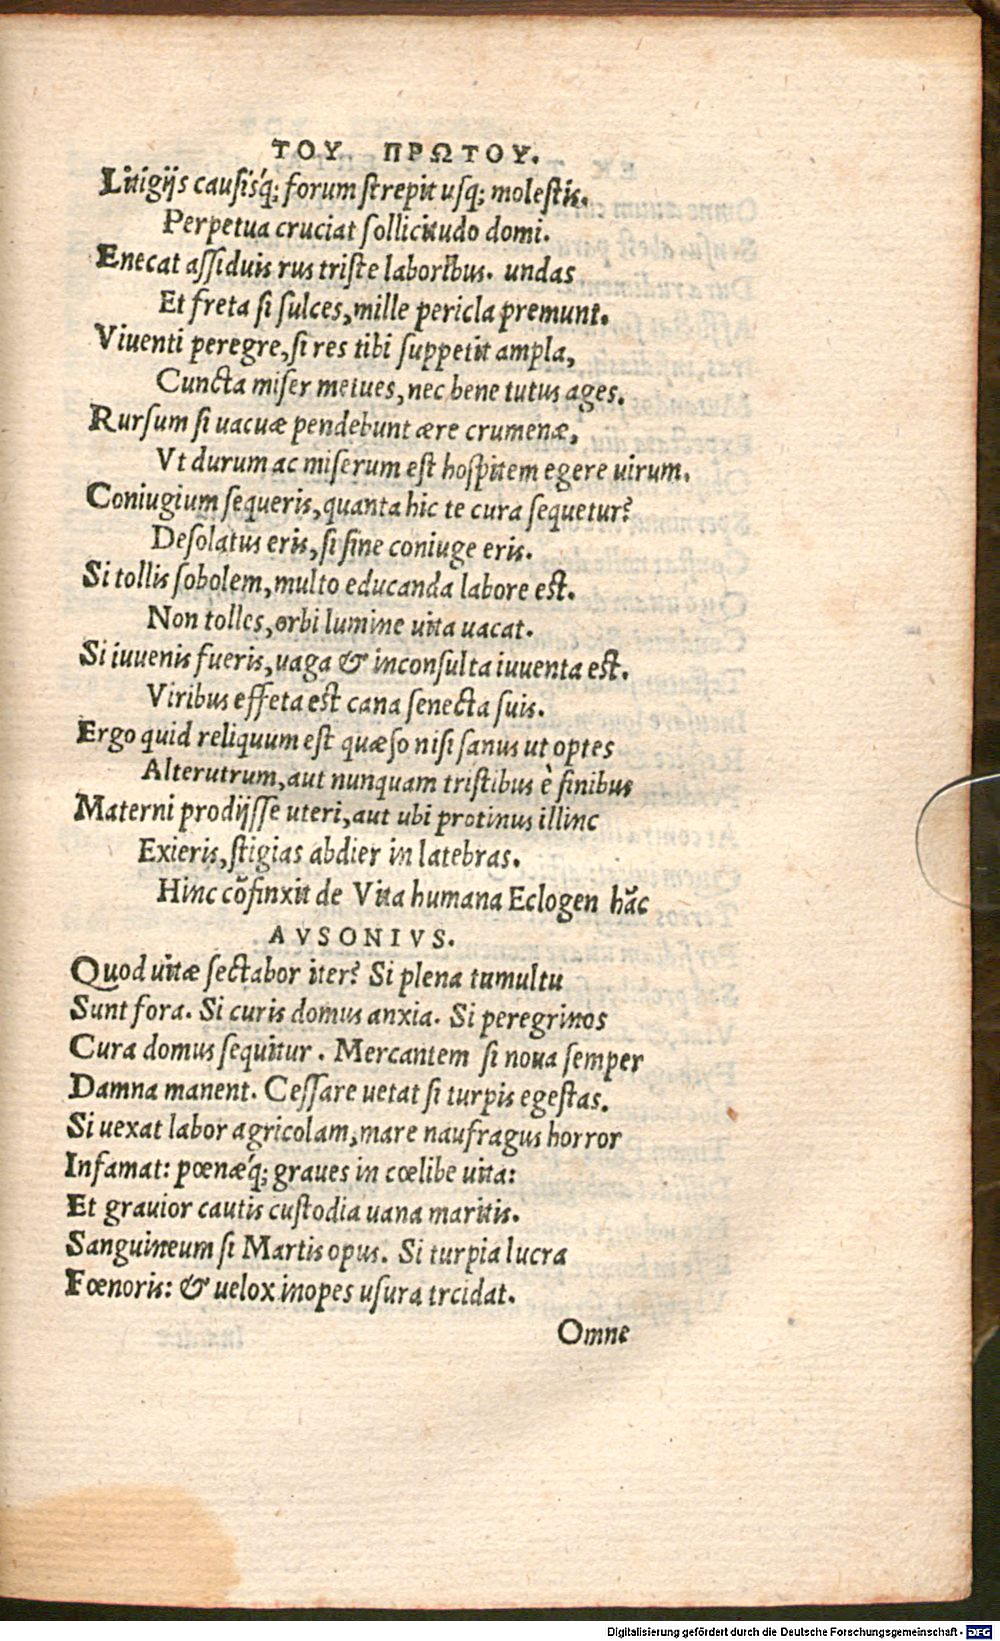 ΤΟΥ ΠΡΩΤΟΥ.
Litigijs causisq́; forum strepit usq; molestis.
Perpetua cruciat sollicitudo domi.
Enecat assiduis rus triste laboribus. undas
Et freta si sulces, mille pericla premunt.
Viuenti peregre, si res tibi suppetit ampla,
Cuncta miser metues, nec bene tutus ages.
Rursum si uacuæ pendebunt ære crumenæ,
Vt durum ac miserum est hospitem egere uirum.
Coniugium sequeris, quanta hic te cura sequetur?
Desolatus eris, si sine coniuge eris.
Si tollis sobolem, multo educanda labore est.
Non tolles, orbi lumine uita uacat.
Si iuuenis fueris, uaga & inconsulta iuuenta est.
Viribus effeta est cana senecta suis.
Ergo quid reliquum est quæso nisi sanus ut optes
Alterutrum, aut nunquam tristibus è finibus
Materni prodijsse uteri, aut ubi protinus illinc
Exieris, stigias abdier in latebras.
Hinc cõfinxit de Vita humana Eclogen hãc
AVSONIVS.
Quod uitæ sectabor iter? Si plena tumultu
Sunt fora. Si curis domus anxia. Si peregrinos
Cura domus sequitur. Mercantem si noua semper
Damna manent. Cessare uetat si turpis egestas.
Si uexat labor agricolam, mare naufragus horror
Infamat: pœnæq́; graues in cœlibe uita:
Et grauior cautis custodia uana maritis.
Sanguineum si Martis opus. Si turpia lucra
Fœnoris: & uelox inopes usura trcidat.
Omne
Digitalisierung gefördert durch die Deutsche Forschungsgemeinschaft - DFG